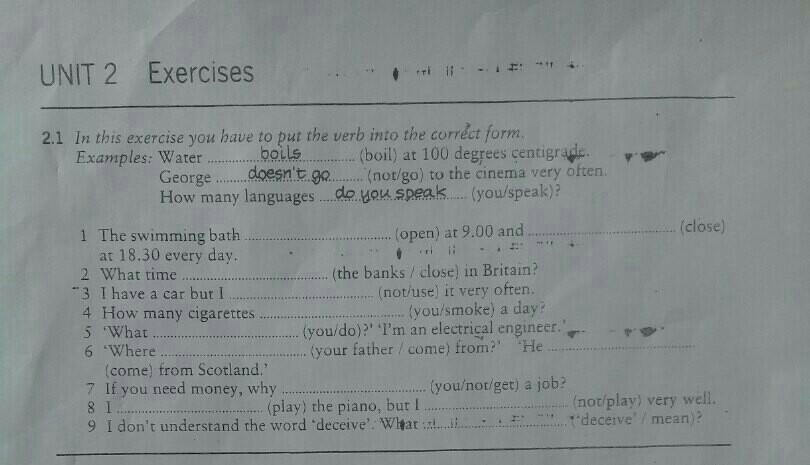 UNIT 2 Exercises
2.1 In this exercise you have to put the verb into the correct form.
Examples: Water ..........boils.......... (boil) at 100 degrees centigrade.
George ..........doesn't go.......... (not/go) to the cinema very often.
How many languages ....do you speak.... (you/speak)?
1 The swimming bath .............................. (open) at 9.00 and .............................. (close)
at 18.30 every day.
2 What time .............................. (the banks / close) in Britain?
3 I have a car but I .............................. (not/use) it very often.
4 How many cigarettes .............................. (you/smoke) a day?
5 'What .............................. (you/do)?' 'I'm an electrical engineer.'
6 'Where .............................. (your father / come) from?' 'He ..............................
(come) from Scotland.'
7 If you need money, why .............................. (you/not/get) a job?
8 I .............................. (play) the piano, but I .............................. (not/play) very well.
9 I don't understand the word 'deceive'. What .............................. ('deceive' / mean)?